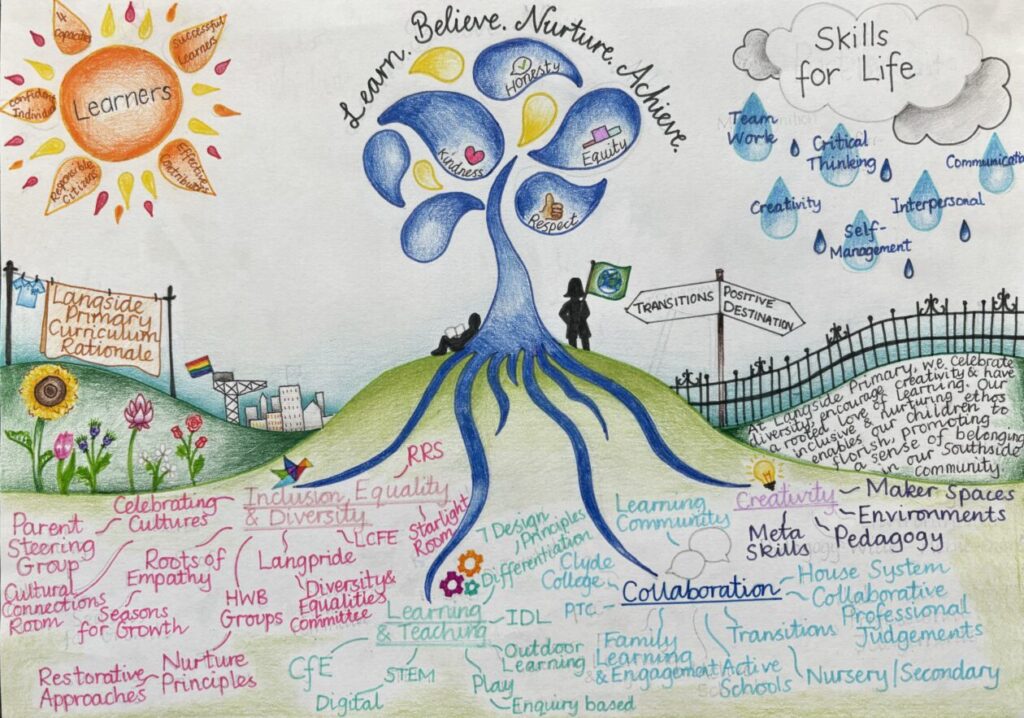 Learn. Believe. Nurture. Achieve.
Learners
4
Capacities
Successful
Learners
Confident
Individ
Responsible
Citizens
Effective
Contributors
Honesty
Kindness
Equity
Respect
Skills
for Life
Team
Work
Critical
Thinking
Communicatio
Creativity
Interpersonal
Self-
Management
Langside
Primary
Curriculum
Rationale
TRANSITIONS
POSITIVE
DESTINATION
At Langside Primary, we celebrate
diversity, encourage creativity & have
a rooted love of learning. Our
inclusive & nurturing ethos
enables our children to
florish, promoting
a sense of belonging
in our Southside
community.
Inclusion, Equality
& Diversity
RRS
Celebrating
Cultures
Parent
Steering
Group
Roots of
Empathy
Langpride
LCFE
Starlight
Room
Cultural
Connections
Room
Seasons
for Growth
HWB
Groups
Diversity &
Equalities
Committee
Restorative
Approaches
Nurture
Principles
Learning
& Teaching
7 Design
Principles
Differentiation
IDL
Outdoor
Learning
Play
Enquiry based
STEM
CfE
Digital
Collaboration
Learning
Community
Clyde
College
PTC
Family
Learning
& Engagement
Active
Schools
Transitions
Nursery/Secondary
House System
Collaborative
Professional
Judgements
Creativity
Maker Spaces
Environments
Pedagogy
Meta
Skills